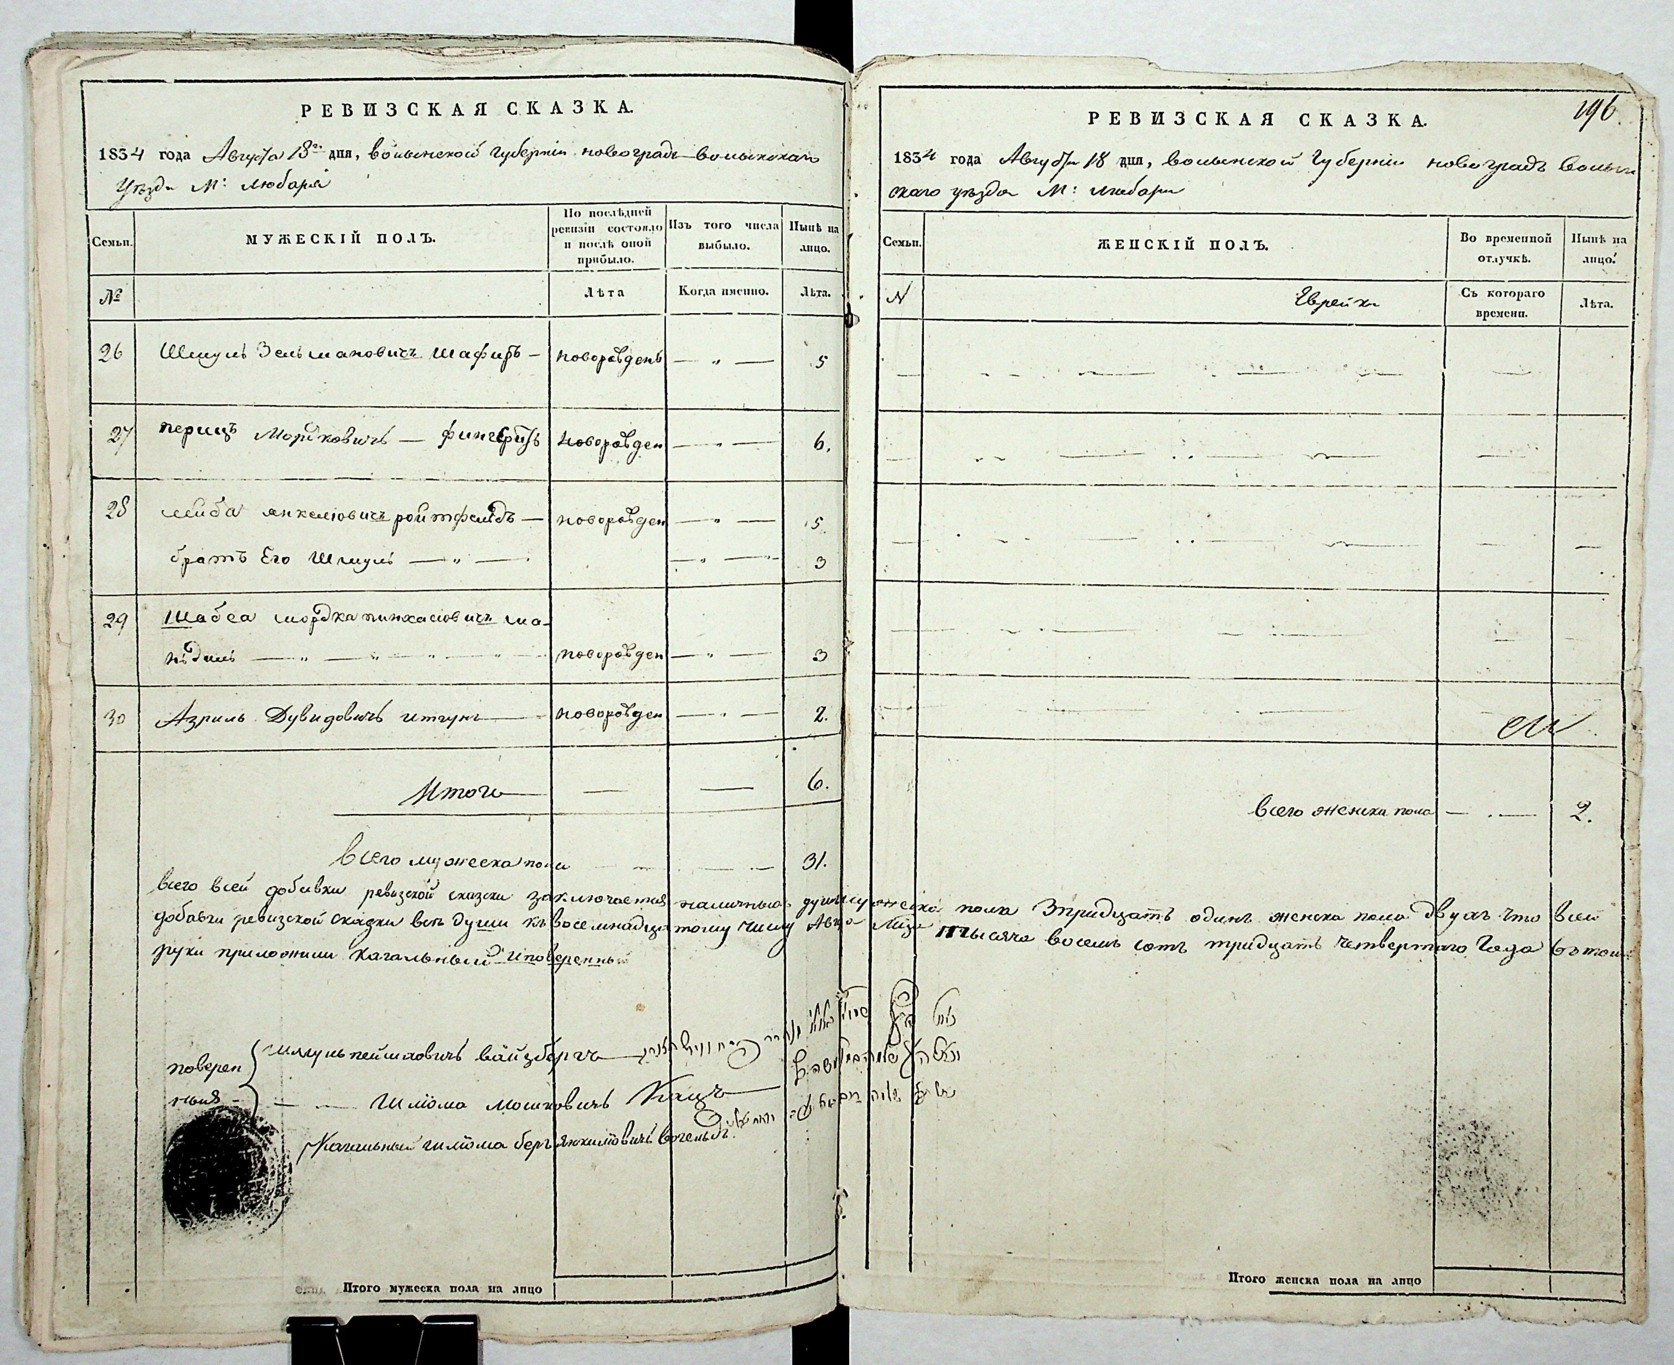 РЕВИЗСКАЯ СКАЗКА.
1834 года Августа 18го дня, волынской губернии новоградъ волынскаго
уѣзда М: Любара
Семьи.
МУЖЕСКІЙ ПОЛЪ.
По послѣдней ревизіи состояло и послѣ оной прибыло.
Изъ того числа выбыло.
Нынѣ на лицо.
№
Лѣта
Когда именно.
Лѣта.
26 Шмуль Зельмановичъ Шафиръ — новорожденъ — „ — 5
27 перицъ Мордковичъ — новорожден — „ — 6.
28 Лейба Янкеліовичъ ройтфельдъ — новорожден — „ — 5
братъ Его Шмуль — „ — — „ — 3
29 Шабса мордка пинхасіовичъ ма-
ндель — „ — „ „ „ новорожден — „ — 3
30 Азриль Дувидовичъ — новорожден — „ — 2.
Итого — — 6.
Всего мужеска пола — 31.
всего всей добавки ревизской сказки заключается наличныхъ душъ мужеска пола тридцать одинъ женска пола двухъ что всей
добавки ревизской сказки есть души къ восемнадцатому числу Августа тысяча восемь сотъ тридцать четвертаго Года въ томъ
руки приложили кагальный и поверенный
поверен
ные
Шмуль вайзбергъ
— — Шлёма мошковичъ Кацъ
Кагальный шлёма беръ Янкиліовичъ
Итого мужеска пола на лицо
196.
РЕВИЗСКАЯ СКАЗКА.
1834 года Августа 18 дня, волынской Губерніи новоградъ волын
скаго уѣзда М: любара
Семьи.
ЖЕНСКІЙ ПОЛЪ.
Во временной отлучкѣ.
Нынѣ на лицо.
N
Еврейки
Съ котораго времени.
Лѣта.
всего женска пола — . — 2.
Итого женска пола на лицо